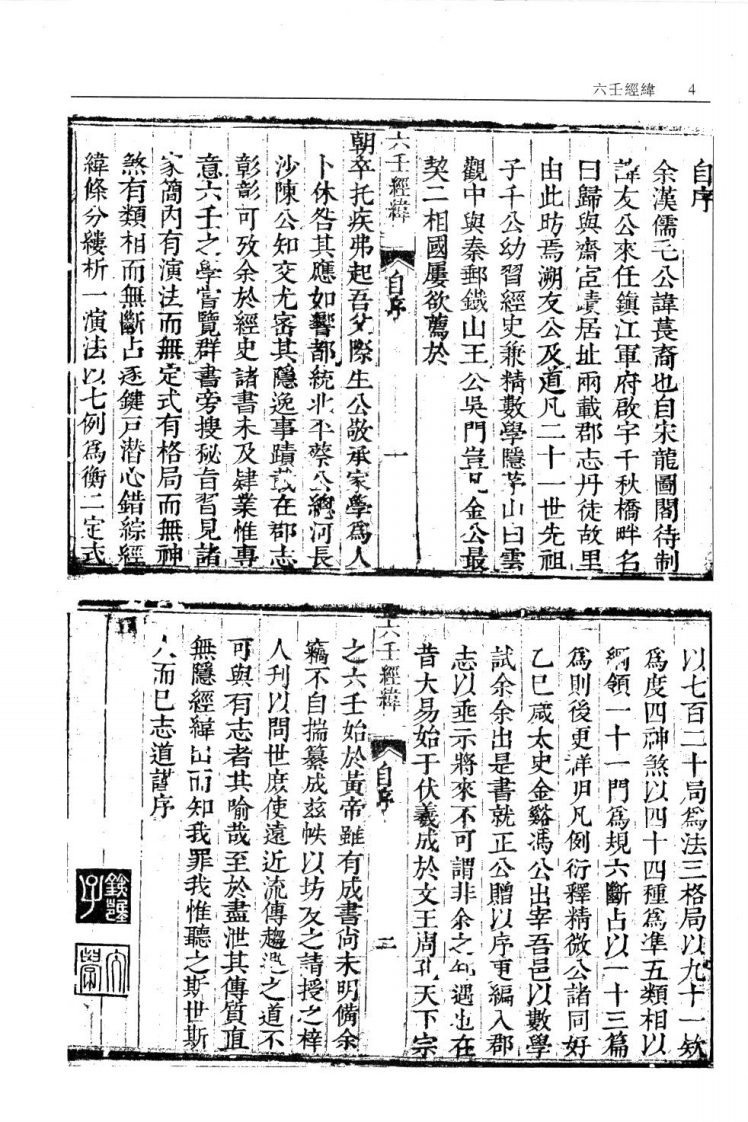 六壬經緯 4
自序
余漢儒毛公諱萇裔也自宋龍圖閣待制
諱友公來任鎮江軍府啟宇千秋橋畔名
曰歸與齋宦蹟居址兩載郡志丹徒故里
由此昉焉溯友公及道凡二十一世先祖
子千公幼習經史兼精數學隱茅山曰雲
觀中與秦郵鐵山王公吳門豈凡金公最
契二相國屢欲薦於
六壬經緯 自序 一
朝卒托疾弗起吾父際生公敬承家學為人
卜休咎其應如響都統北平蔡公總河長
沙陳公知交尤密其隱逸事蹟載在郡志
彰彰可攷余於經史諸書未及肄業惟專
意六壬之學嘗覽群書旁搜秘旨習見諸
家簡內有演法而無定式有格局而無神
煞有類相而無斷占逐鍵戶潜心錯綜經
緯條分縷析一演法以七例為衡二定式
以七百二十局為法三格局以九十一欸
為度四神煞以四十四種為準五類相以
綱領一十一門為規六斷占以一十三篇
為則後更詳明凡例衍釋精微公諸同好
乙巳歲太史金谿馮公出宰吾邑以數學
試余余出是書就正公贈以序更編入郡
志以垂示將來不可謂非余之 遇也在
昔大易始于伏羲成於文王周孔天下宗
六壬經緯 自序 二
之六壬始於黃帝雖有成書尚未明備余
竊不自揣纂成兹帙以坊友之請授之梓
人刊以問世庶使遠近流傳趨避之道不
可與有志者其喻哉至於盡泄其傳質直
無隱經緯出而知我罪我惟聽之斯世斯
人而已志道謹序